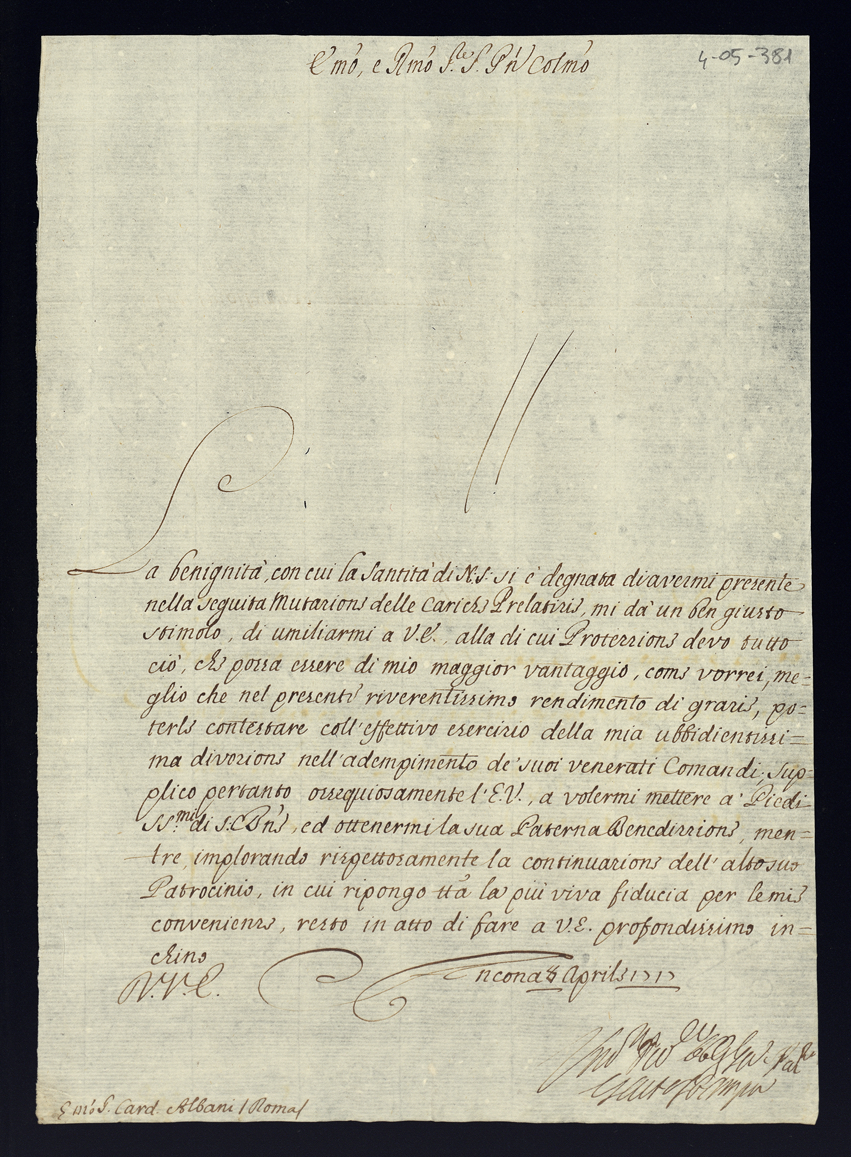 Emo, e Rmo Sre. S. Pñ Colmo
4-05-381
La benignità, con cui la Santità di N.S. si è degnata di avermi presente
nella seguita Mutazione delle Cariche Prelatizie, mi dà un ben giusto
stimolo, di umiliarmi a V.E., alla di cui Protezzione devo tutto
ciò, che possa essere di mio maggior vantaggio, come vorrei, me=
glio che nel presente riverentissimo rendimento di grazie, po=
terle contestare coll'effettivo esercizio della mia ubbidientissi=
ma divozione nell'adempimento de' suoi venerati Comandi; Sup=
plico pertanto ossequiosamente l'E.V., a volermi mettere a' Piedi
SSmi di S. Bne, ed ottenermi la sua Paterna Benedizzione, men=
tre, implorando rispettosamente la continuazione dell'alto suo
Patrocinio, in cui ripongo tta la più viva fiducia per le mie
convenienze, resto in atto di fare a V.E. profondissimo in=
chino
V.E.
Ancona Aprile 1717
Emo S. Card. Albani / Roma /